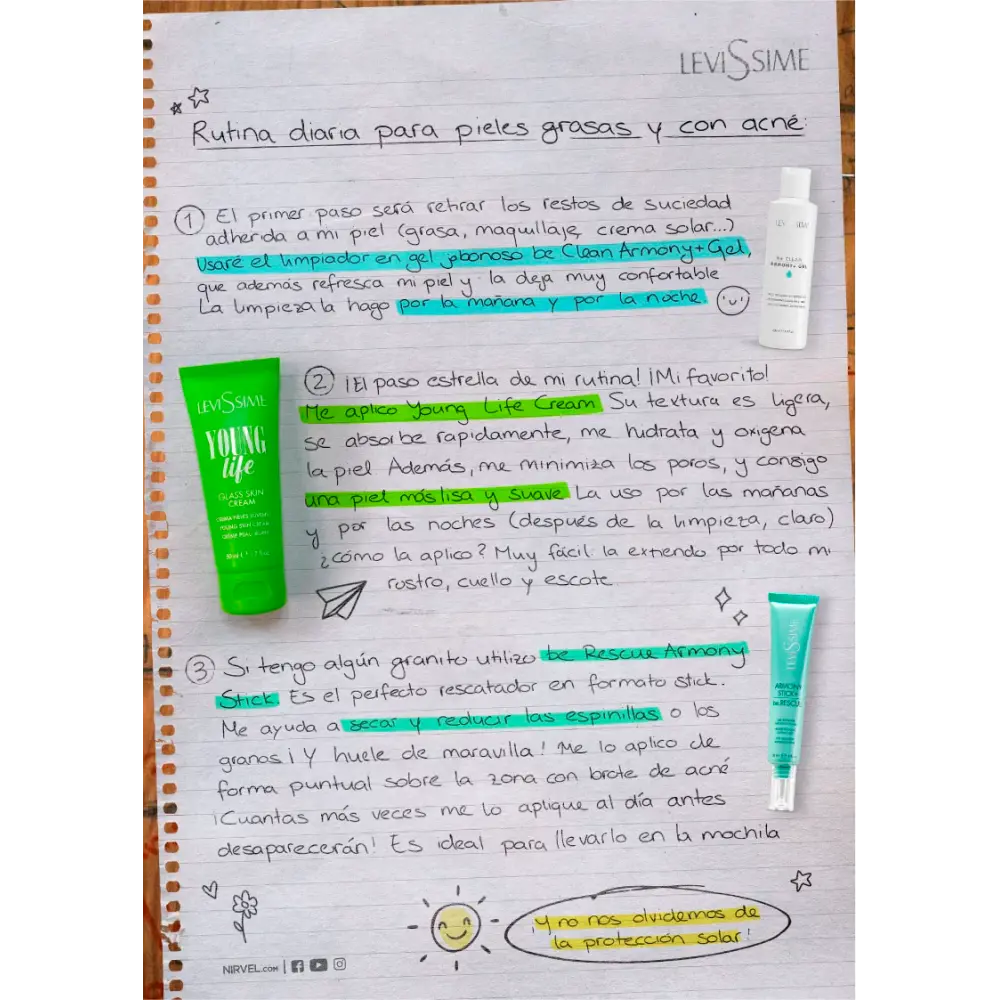 LEVISSIME
Rutina diaria para pieles grasas y con acné:
1 El primer paso será retirar los restos de suciedad
adherida a mi piel (grasa, maquillaje, crema solar...)
Usaré el limpiador en gel jabonoso be Clean Armony+Gel,
que además refresca mi piel y la deja muy confortable
La limpieza la hago por la mañana y por la noche.
LEVISSIME
be CLEAN
ARMONY+ GEL
2 ¡El paso estrella de mi rutina! ¡Mi favorito!
Me aplico Young Life Cream Su textura es ligera,
se absorbe rapidamente, me hidrata y oxigena
la piel Además, me minimiza los poros, y consigo
una piel más lisa y suave La uso por las mañanas
y por las noches (después de la limpieza, claro)
¿cómo la aplico? Muy fácil la extiendo por todo mi
rostro, cuello y escote.
LEVISSIME
YOUNG
life
GLASS SKIN
CREAM
3 Si tengo algún granito utilizo be Rescue Armony
Stick. Es el perfecto rescatador en formato stick.
Me ayuda a secar y reducir las espinillas o los
granos ¡Y huele de maravilla! Me lo aplico de
forma puntual sobre la zona con brote de acné
¡Cuantas más veces me lo aplique al día antes
desaparecerán! Es ideal para llevarlo en la mochila
LEVISSIME
ARMONY
STICK+
be RESCUE
¡Y no nos olvidemos de
la protección solar!
NIRVEL.COM